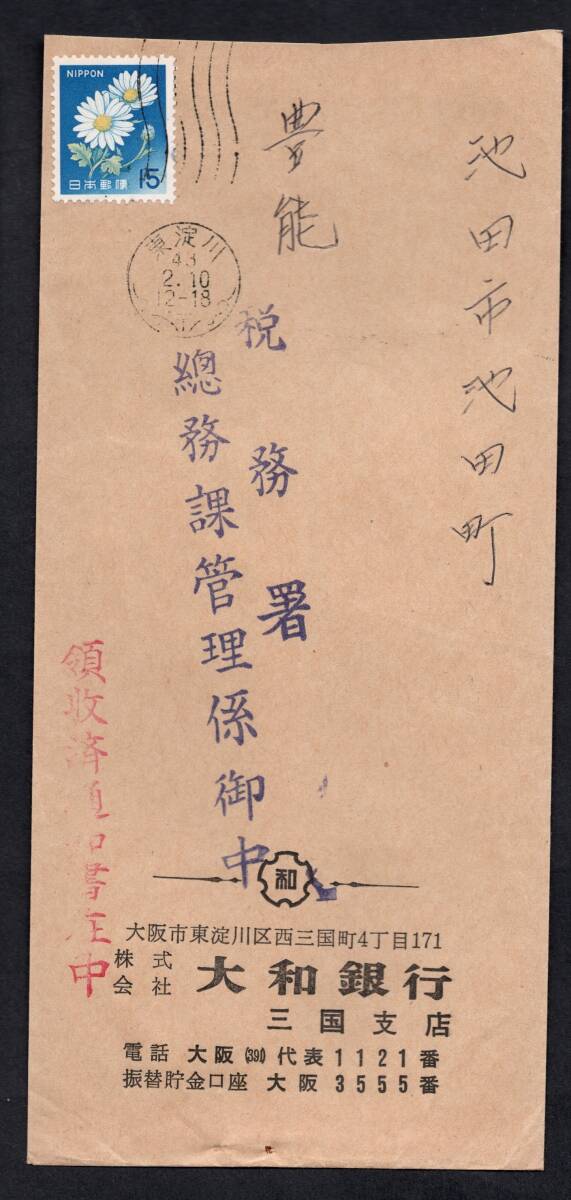 NIPPON
日本郵便 15
東淀川
43
2.10
12-18
池田市池田町
豊能
税務署
總務課管理係御中
領收済通知書在中
和
大阪市東淀川区西三国町4丁目171
株式会社 大和銀行
三国支店
電話 大阪(391)代表1121番
振替貯金口座 大阪 3555番